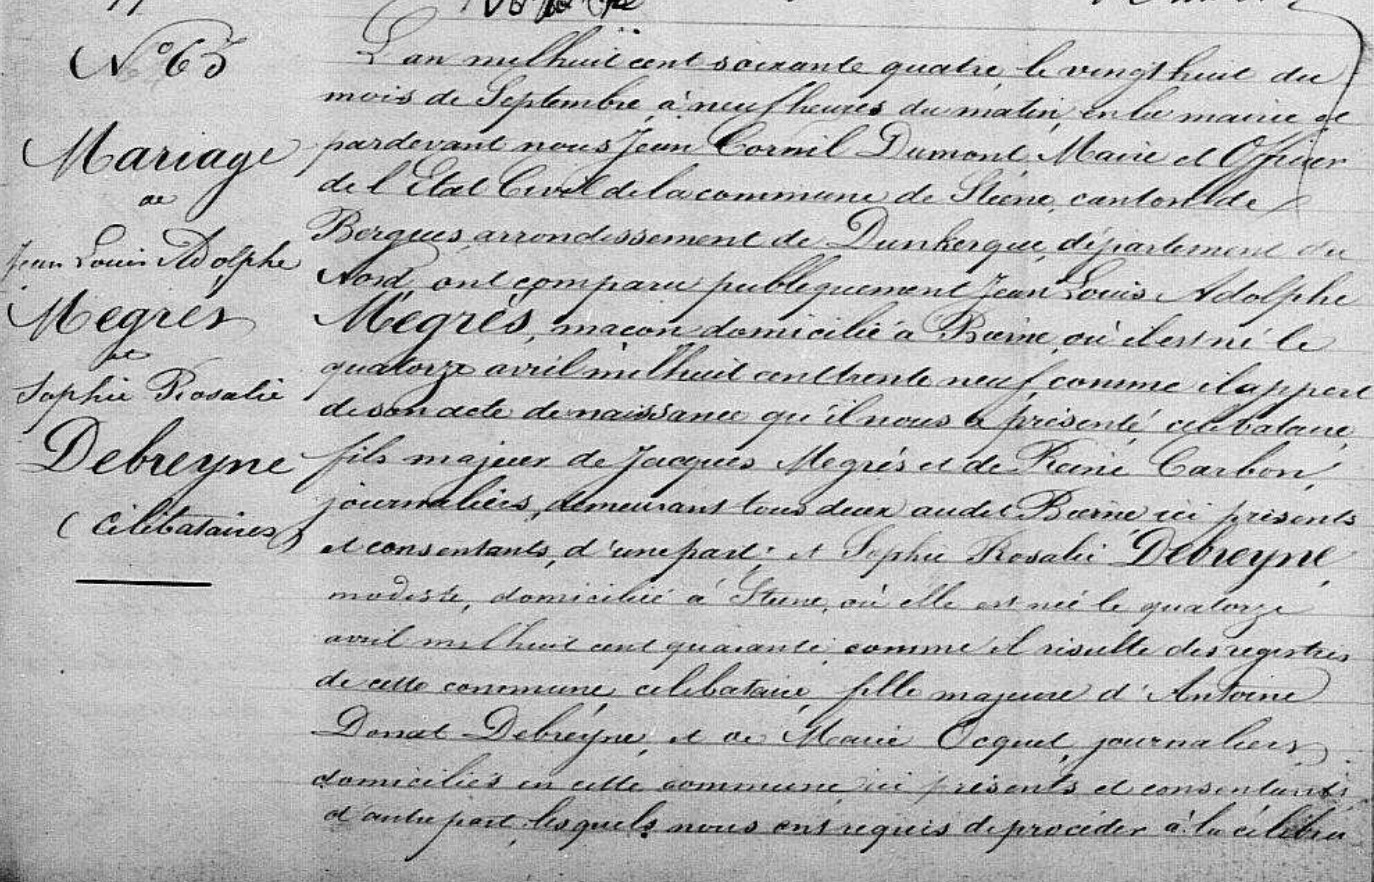 N° 65
Mariage
de
Jean Louis Adolphe
Megrés
et
Sophie Rosalie
Debreyne
(célibataires)
L'an mil huit cent soixante quatre le vingt huit du
mois de Septembre, à neuf heures du matin, en la mairie et
pardevant nous Jean Cornil Dumont, Maire et Officier
de l'Etat Civil de la commune de Steene, canton de
Bergues, arrondissement de Dunkerque, département du
Nord, ont comparu publiquement Jean Louis Adolphe
Megrés, maçon domicilié à Bierne, où il est né le
quatorze avril mil huit cent trente neuf, comme il appert
de son acte de naissance qu'il nous a présenté, célibataire,
fils majeur de Jacques Megrés et de Reine Carbon,
journaliers, demeurant tous deux audit Bierne ici présents
et consentants, d'une part; et Sophie Rosalie Debreyne,
modiste, domiciliée à Steene, où elle est née le quatorze
avril mil huit cent quarante, comme il résulte des registres
de cette commune, célibataire, fille majeure d'Antoine
Donat Debreyne, et de Marie Ocquet, journaliers,
domiciliés en cette commune, ici présents et consentants,
d'autre part, lesquels nous ont requis de procéder à la célébra